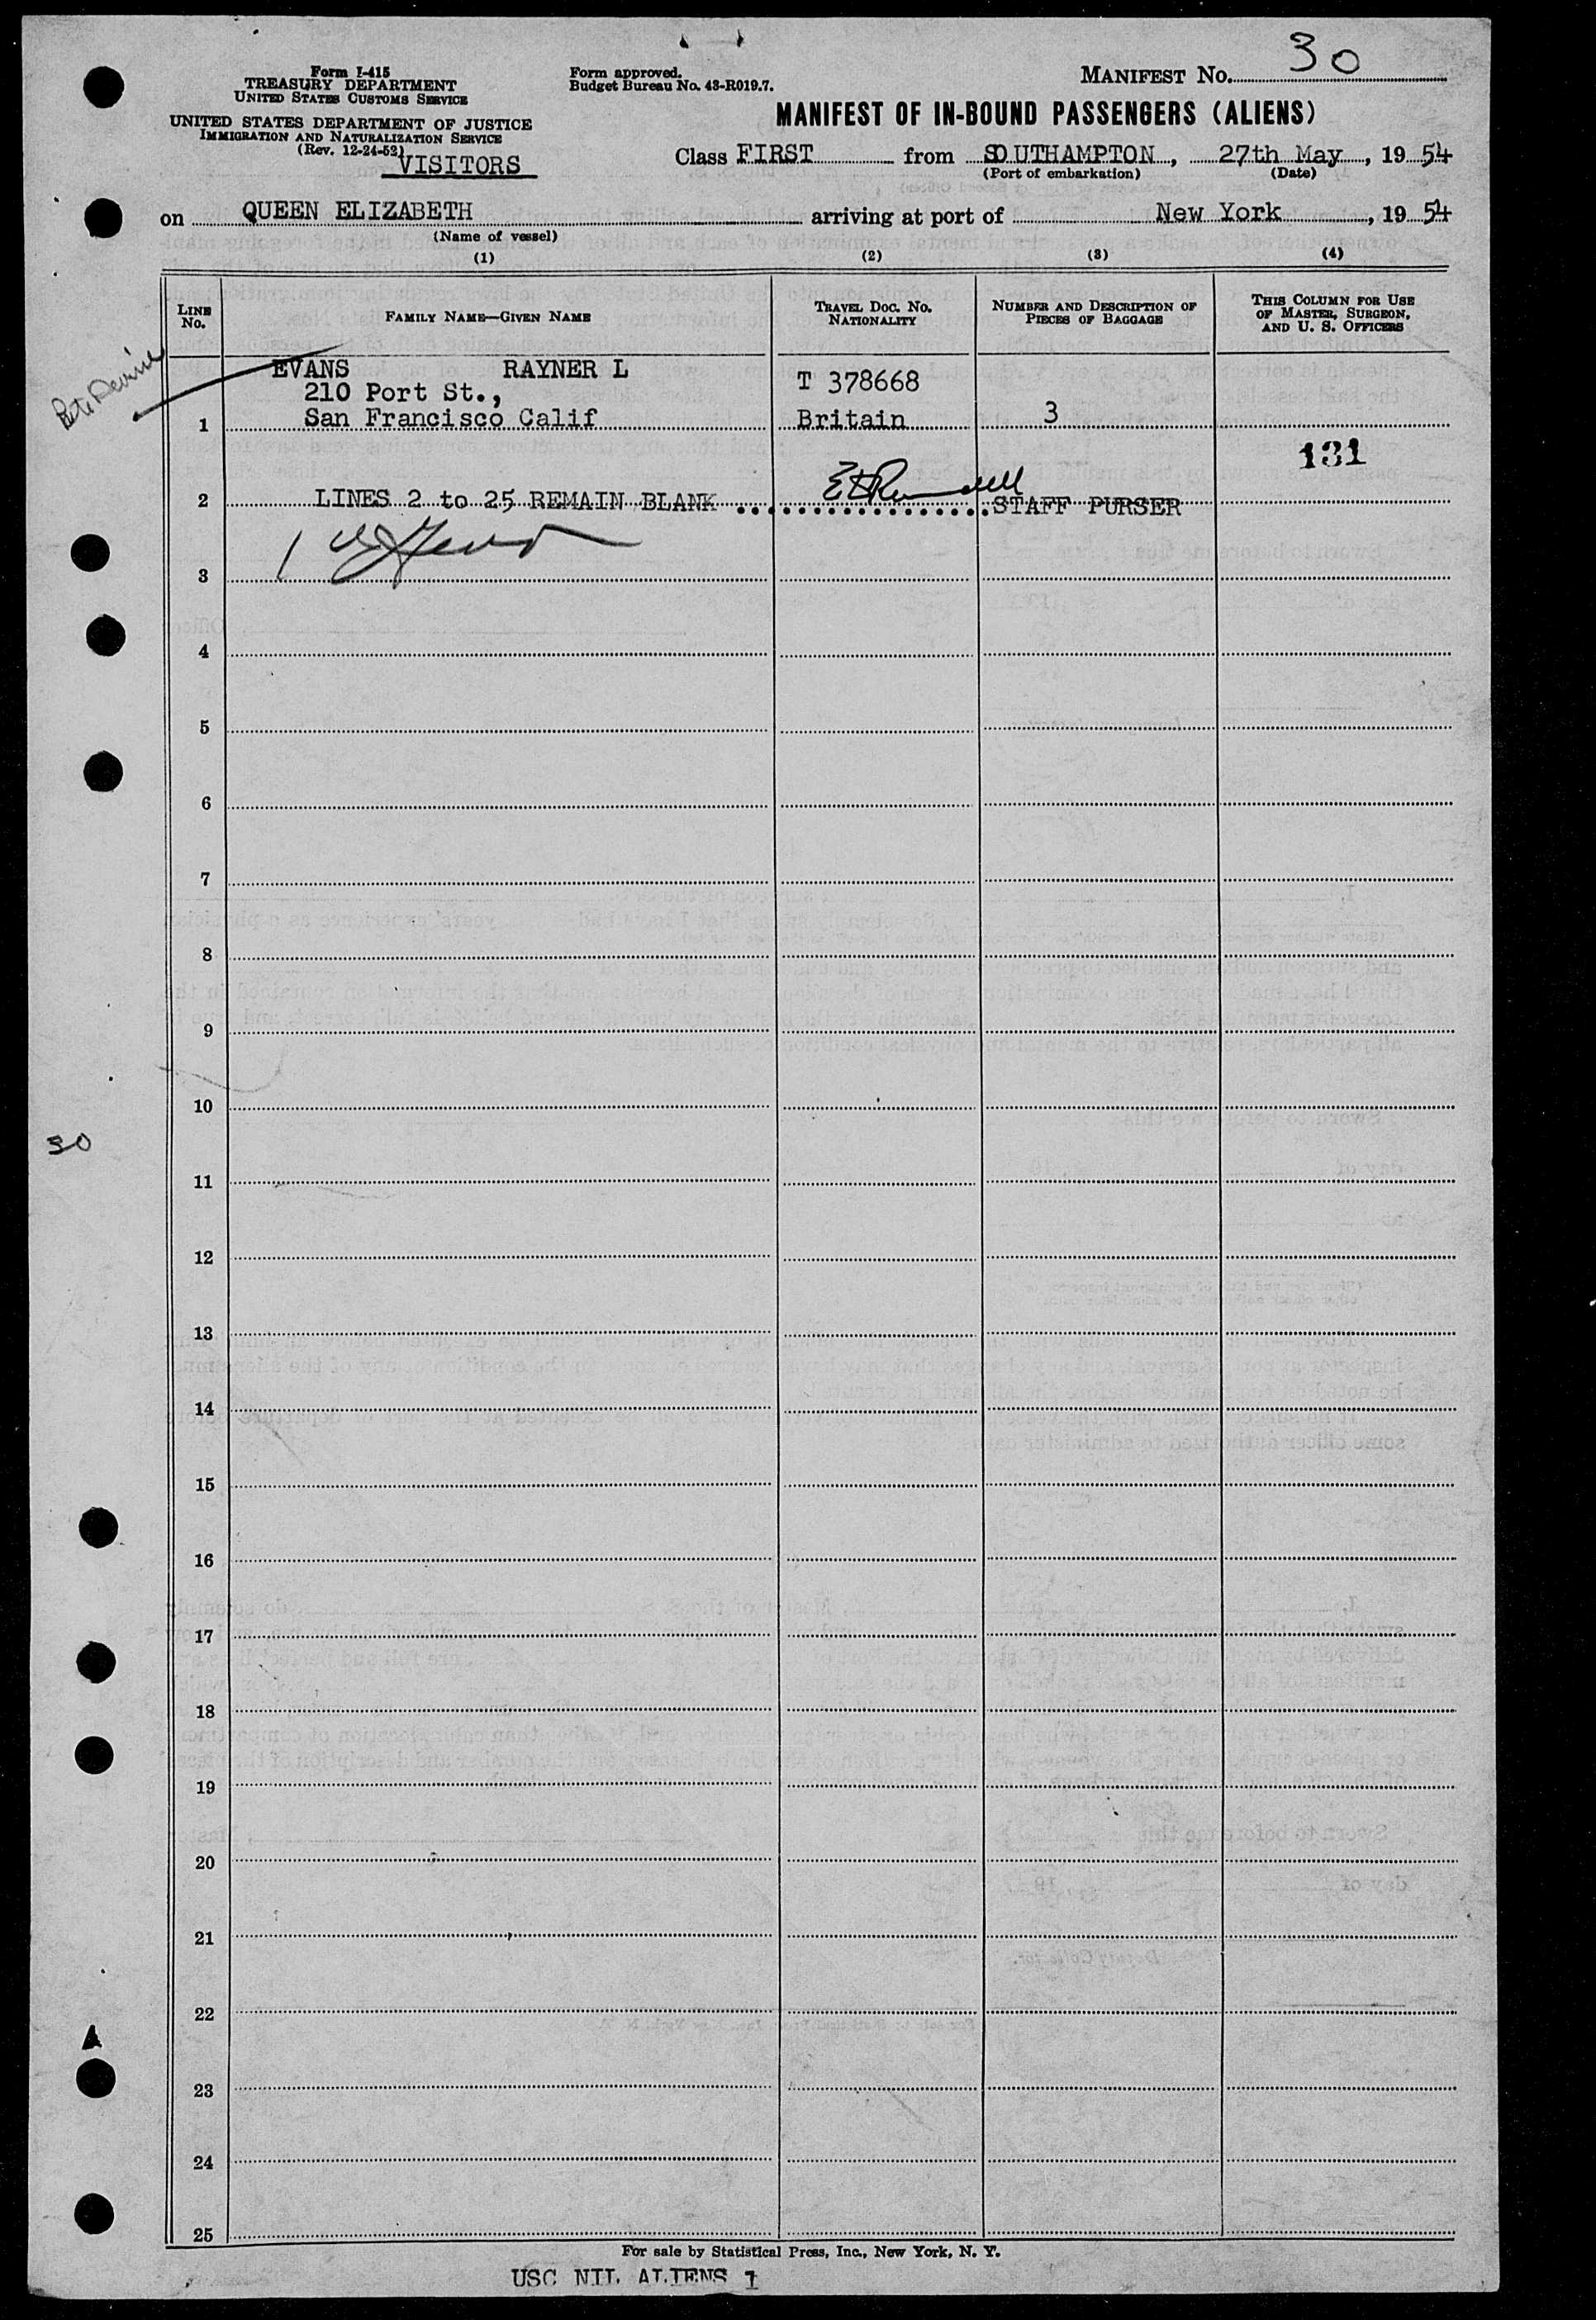 Form I-415
TREASURY DEPARTMENT
UNITED STATES CUSTOMS SERVICE
UNITED STATES DEPARTMENT OF JUSTICE
IMMIGRATION AND NATURALIZATION SERVICE
(Rev. 12-24-52)
VISITORS
Form approved.
Budget Bureau No. 43-R019.7.
MANIFEST No. 30
MANIFEST OF IN-BOUND PASSENGERS (ALIENS)
Class FIRST from SOUTHAMPTON, 27th May, 1954
(Port of embarkation) (Date)
on QUEEN ELIZABETH arriving at port of New York, 1954
(Name of vessel)
(1) (2) (3) (4)
LINE No. FAMILY NAME—GIVEN NAME TRAVEL DOC. NO. NATIONALITY NUMBER AND DESCRIPTION OF PIECES OF BAGGAGE THIS COLUMN FOR USE OF MASTER, SURGEON, AND U. S. OFFICERS
EVANS RAYNER L
210 Port St., T 378668
1 San Francisco Calif Britain 3
131
2 LINES 2 to 25 REMAIN BLANK STAFF PURSER
3
4
5
6
7
8
9
10
30
11
12
13
14
15
16
17
18
19
20
21
22
23
24
25
For sale by Statistical Press, Inc., New York, N. Y.
USC NIL ALIENS 1